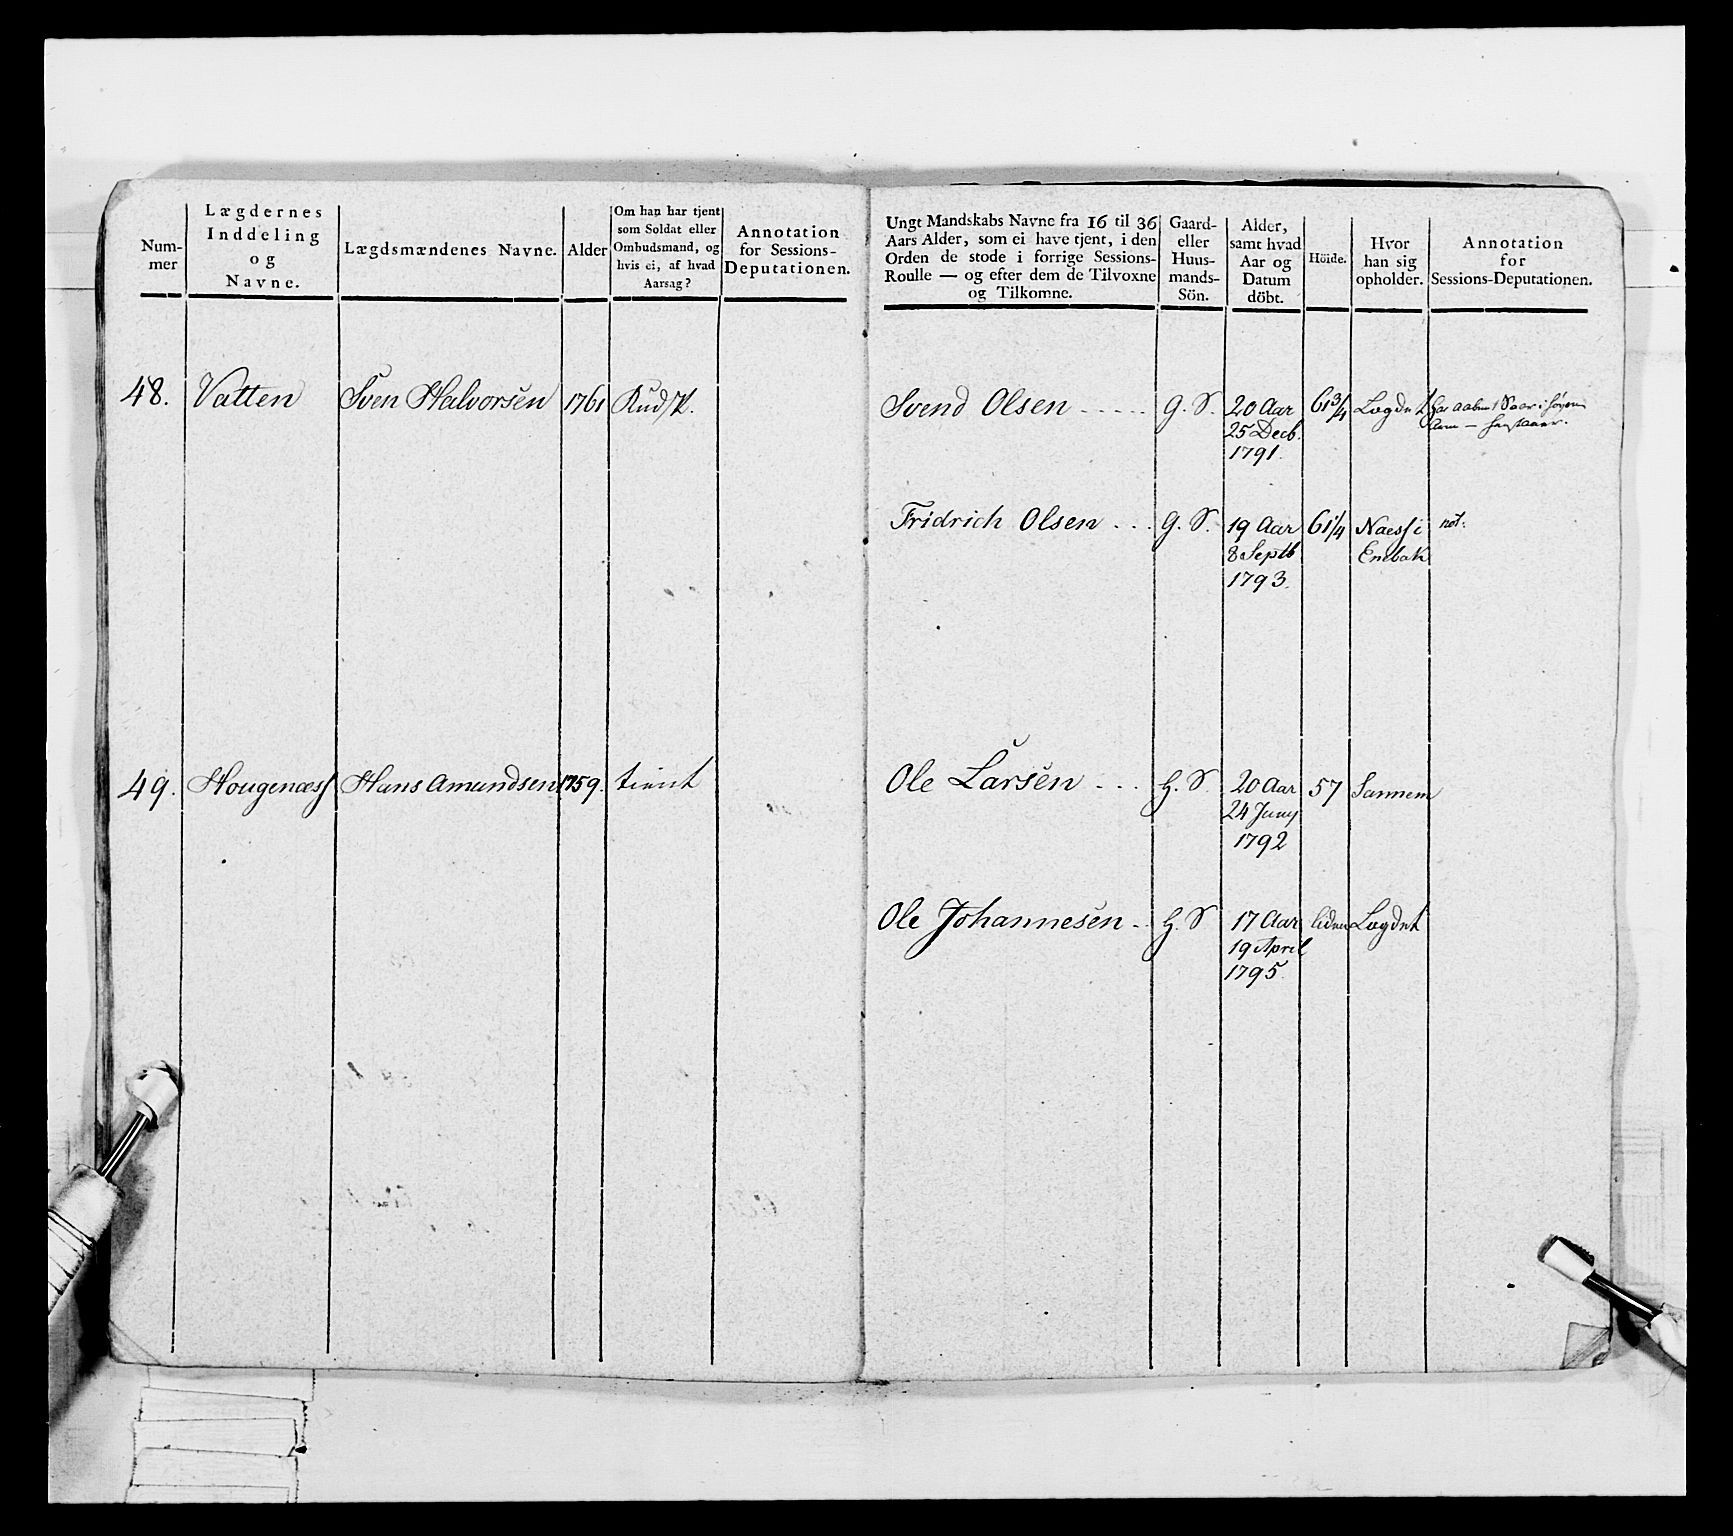 Num-
mer
Lægdernes
Inddeling
og
Navne.
Lægdsmændenes Navne.
Alder
Om han har tjent
som Soldat eller
Ombudsmand, og
hvis ei, af hvad
Aarsag?
Annotation
for Sessions-
Deputationen.
Ungt Mandskabs Navne fra 16 til 36
Aars Alder, som ei have tjent, i den
Orden de stode i forrige Sessions-
Roulle — og efter dem de Tilvoxne
og Tilkomne.
Gaard-
eller
Huus-
mands-
Sön.
Alder,
samt hvad
Aar og
Datum
döbt.
Höide.
Hvor
han sig
opholder.
Annotation
for
Sessions-Deputationen.
48. Vatten Sven Halvorsen 1761
Svend Olsen - - - - - G. S. 20 Aar 61 3/4 Lægdet
25 Decb.
1791.
Fridrich Olsen - - - G. S. 19 Aar 61 1/4 Naess i not:
8 Septb Enebak
1793.
49. Hougenæss Hans Amundsen 1759. tient
Ole Larsen - - - H. S. 20 Aar 57 Sannem
24 Juny
1792
Ole Johannesen - - H. S 17 Aar liden Lægdet
19 April
1795.